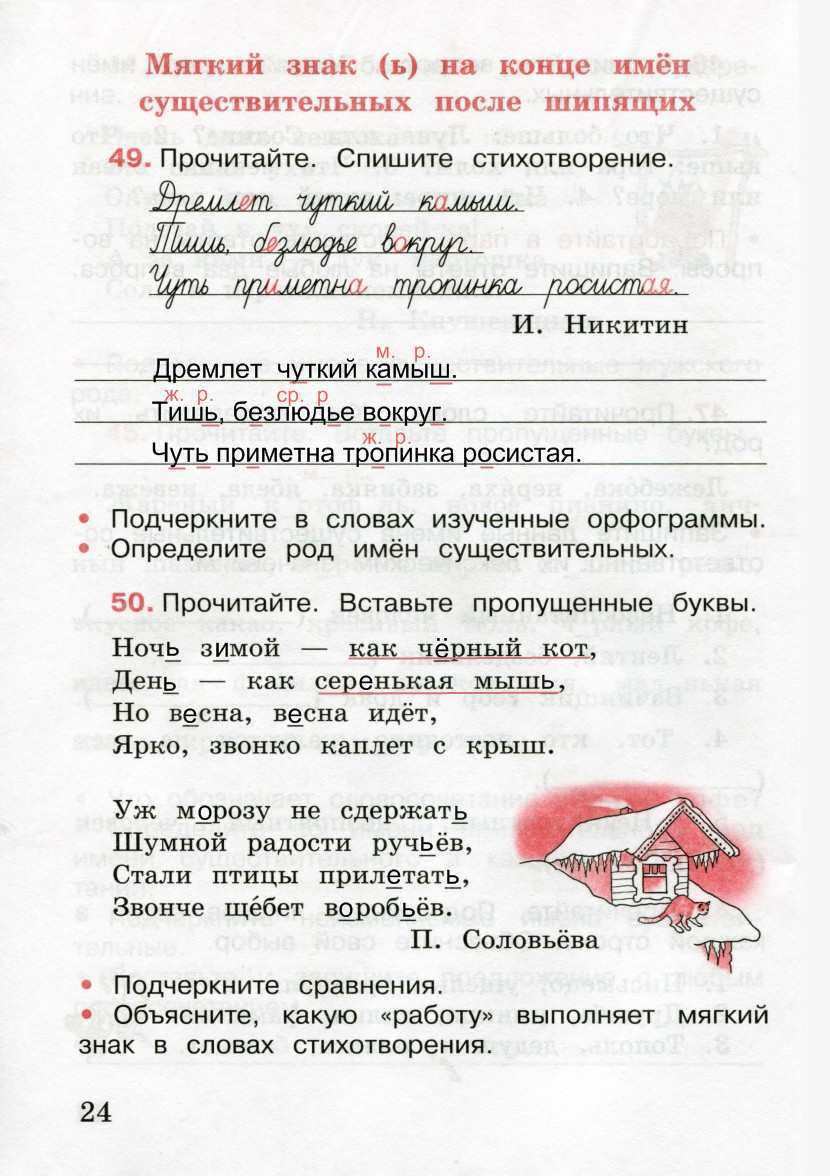 Мягкий знак (ь) на конце имён
существительных после шипящих
49. Прочитайте. Спишите стихотворение.
Дремлет чуткий камыш.
Тишь, безлюдье вокруг.
Чуть приметна тропинка росистая.
И. Никитин
м. р.
Дремлет чуткий камыш.
ж. р. ср. р
Тишь, безлюдье вокруг.
ж. р.
Чуть приметна тропинка росистая.
• Подчеркните в словах изученные орфограммы.
• Определите род имён существительных.
50. Прочитайте. Вставьте пропущенные буквы.
Ночь зимой — как чёрный кот,
День — как серенькая мышь,
Но весна, весна идёт,
Ярко, звонко каплет с крыш.
Уж морозу не сдержать
Шумной радости ручьёв,
Стали птицы прилетать,
Звонче щебет воробьёв.
П. Соловьёва
• Подчеркните сравнения.
• Объясните, какую «работу» выполняет мягкий
знак в словах стихотворения.
24